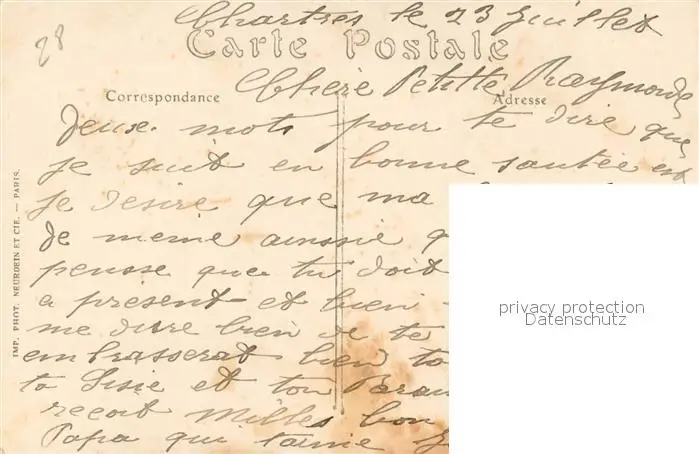 28
Chartres le 23 Juillet
Carte Postale
Chère Petitte Raymonde
Correspondance
Adresse
deux mots pour te dire que
je suit en bonne santée est
je desire que ma
de meme ainssie
pensse que tu doit
a présent et bien
me dire bien de te
embrasserat bien
ta Sisie et ton
reçoit Milles bon
Papa qui t'aime
IMP. PHOT. NEURDEIN ET CIE. — PARIS.
privacy protection
Datenschutz